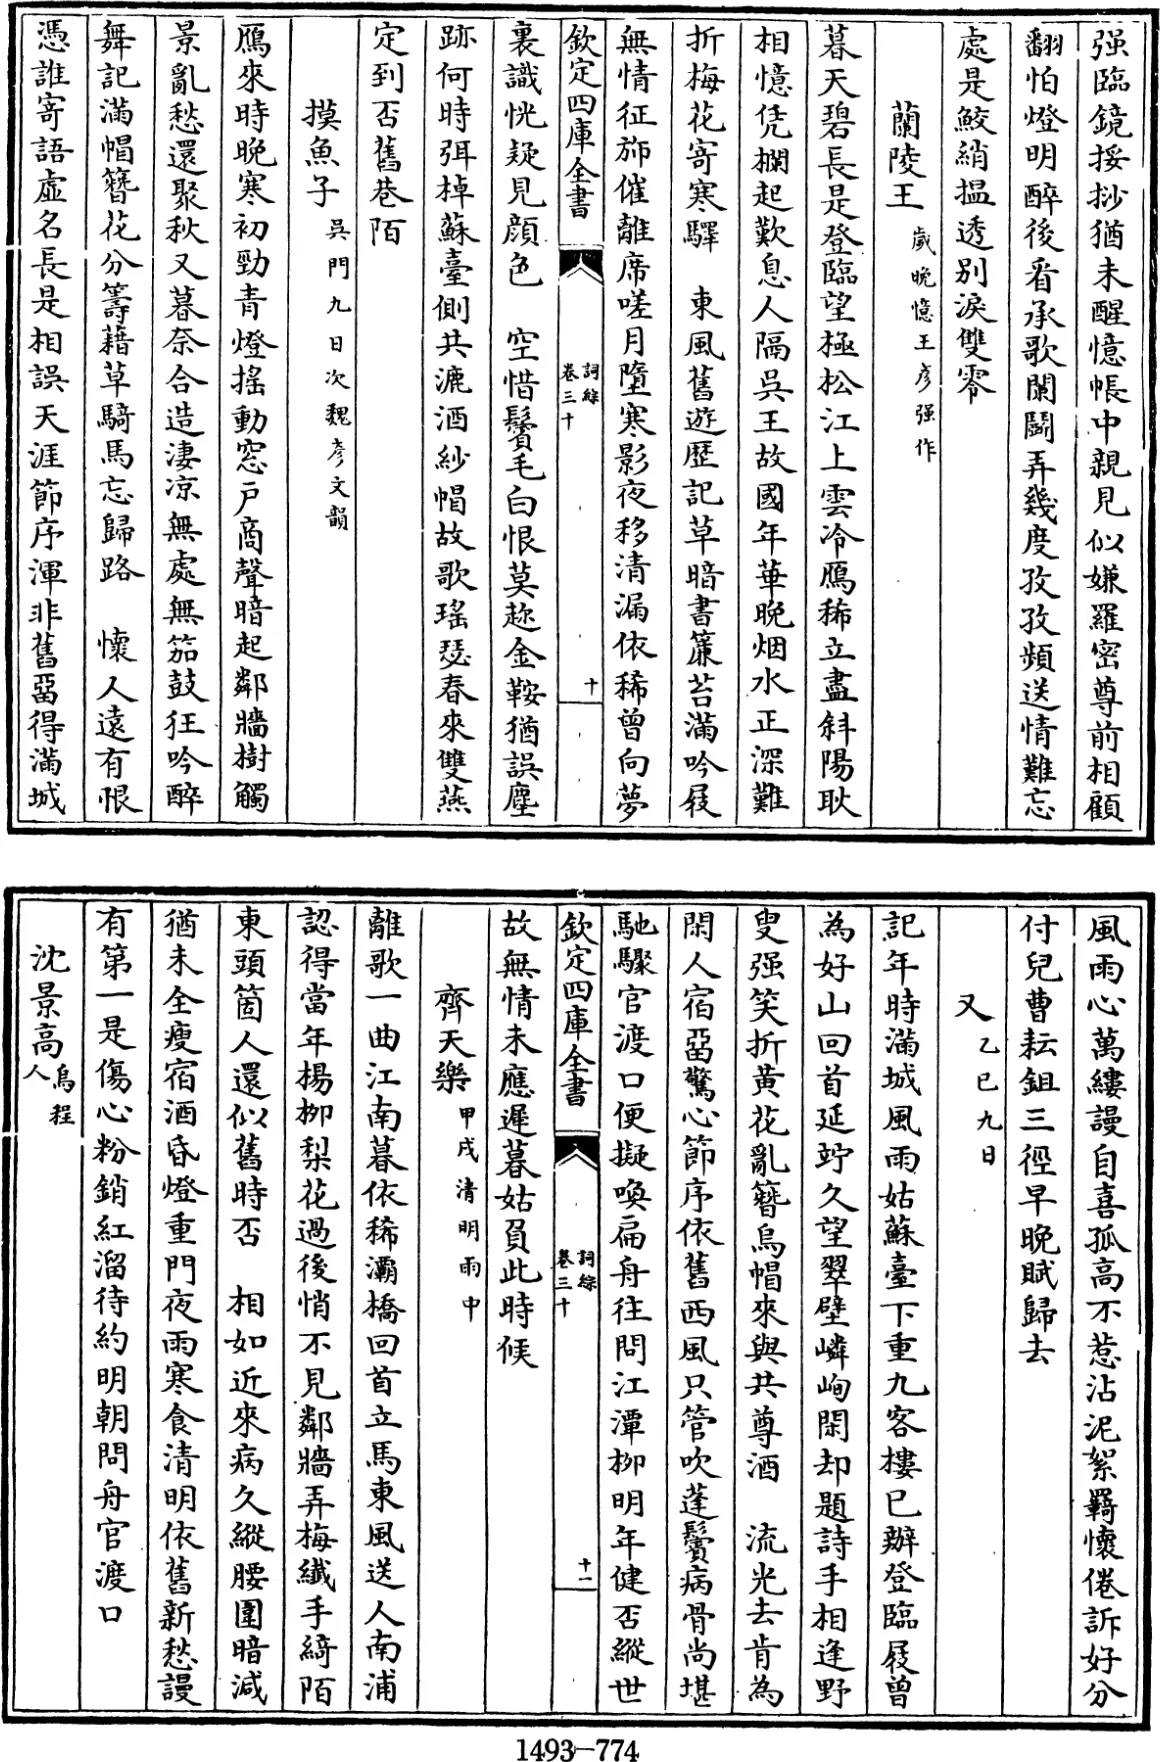 强臨鏡挼挱猶未醒憶帳中親見似嫌羅密尊前相顧
翻怕燈明醉後看承歌闌鬬弄幾度孜孜頻送情難忘
處是鮫綃揾透别淚雙零
蘭陵王 歲晚憶王彦强作
暮天碧長是登臨望極松江上雲冷鴈稀立盡斜陽耿
相憶凭欄起歎息人隔吳王故國年華晚烟水正深難
折梅花寄寒驛 東風舊遊歴記草暗書簾苔滿吟屐
無情征斾催離席嗟月墮寒影夜移清漏依稀曾向夢
欽定四庫全書 詞綜 卷三十 十
裏識恍疑見顔色 空惜鬢毛白恨莫趂金鞍猶誤塵
跡何時弭棹蘇臺側共漉酒紗帽故歌瑤瑟春來雙燕
定到否舊巷陌
摸魚子 吳門九日次魏彦文韻
鴈來時晚寒初勁青燈摇動窓户商聲暗起鄰牆樹觸
景亂愁還聚秋又暮奈合造凄凉無處無笳鼓狂吟醉
舞記滿帽簪花分籌藉草騎馬忘歸路 懷人逺有恨
憑誰寄語虛名長是相誤天涯節序渾非舊畱得滿城
風雨心萬縷謾自喜孤高不惹沾泥絮羇懷倦訴好分
付兒曹耘鉏三徑早晚賦歸去
又 乙巳九日
記年時滿城風雨姑蘇臺下重九客樓已辦登臨屐曾
為好山回首延竚久望翠壁嶙峋閑却題詩手相逢野
叟强笑折黄花亂簪烏帽來與共尊酒 流光去肯為
閑人宿畱驚心節序依舊西風只管吹蓬鬢病骨尚堪
馳驟官渡口便擬喚扁舟往問江潭柳明年健否縱世
欽定四庫全書 詞綜 卷三十 十一
故無情未應遲暮姑負此時候
齊天樂 甲戌清明雨中
離歌一曲江南暮依稀灞橋回首立馬東風送人南浦
認得當年楊柳梨花過後悄不見鄰牆弄梅纖手綺陌
東頭箇人還似舊時否 相如近來病久縱腰圍暗減
猶未全瘦宿酒昏燈重門夜雨寒食清明依舊新愁謾
有第一是傷心粉銷紅溜待約明朝問舟官渡口
沈景高 烏程人
1493—774